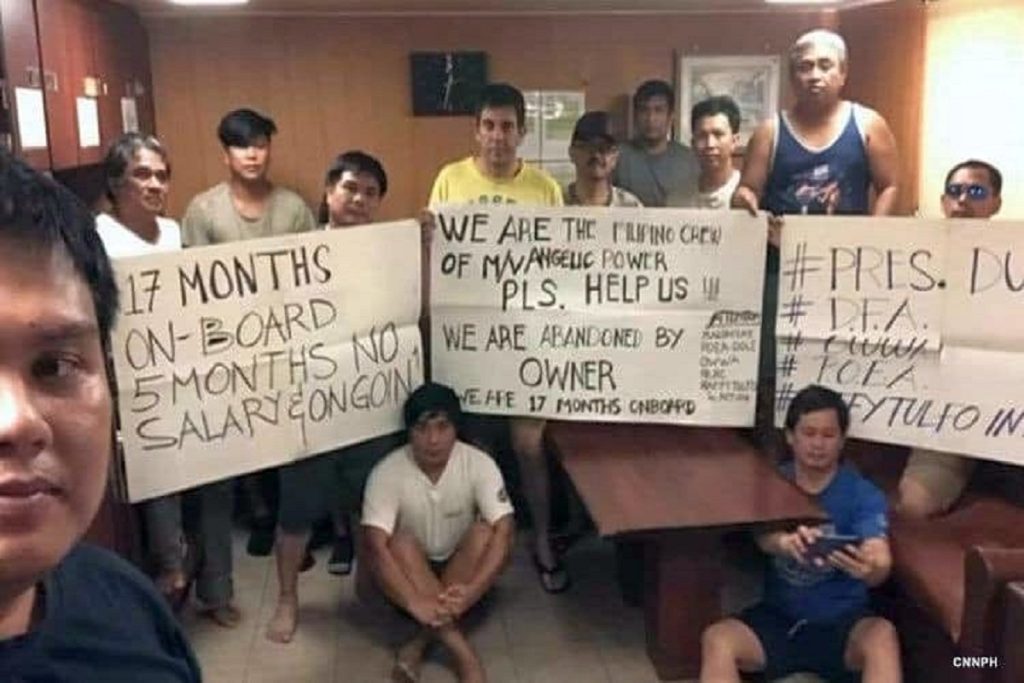 17 MONTHS
ON-BOARD
5 MONTHS NO
SALARY & ONGOIN
WE ARE THE FILIPINO CREW
OF M/V ANGELIC POWER
PLS. HELP US !!!
WE ARE ABANDONED BY
OWNER
WE ARE 17 MONTHS ONBOARD
ATTENTION
POEA-DOLE
OWWA
RAFFY TULFO
IN ACTION
# PRES. DU
# D.F.A.
# OWWA
# POEA.
FYTULFO IN
CNNPH